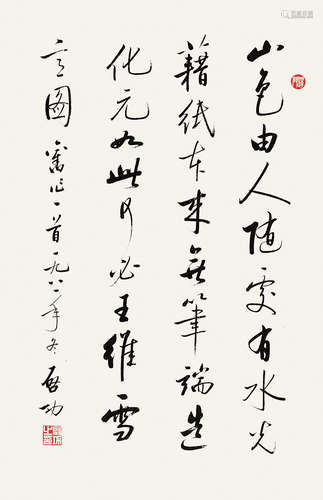 山色由人随处有水光
藉纸本来无笔端造
化元如此何必王维雪
意图 旧作一首一九八一年冬 启功